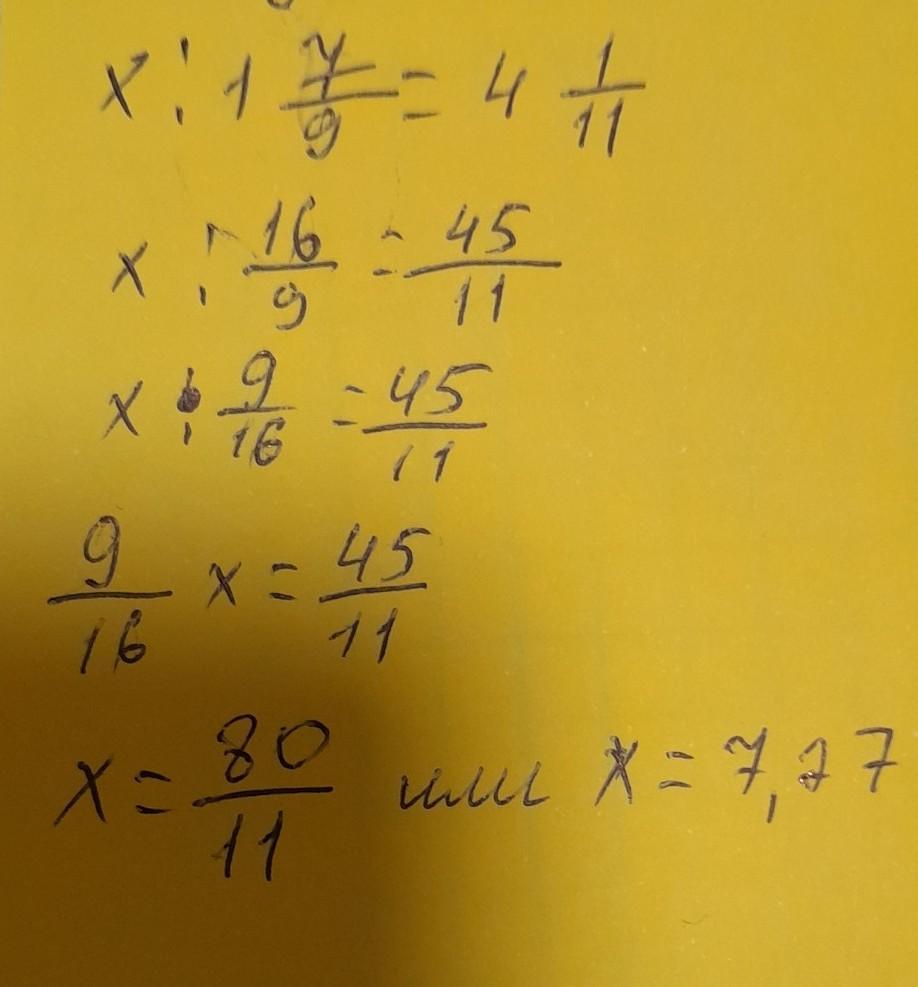 x : 1 7/9 = 4 1/11
x : 16/9 = 45/11
x · 9/16 = 45/11
9/16 x = 45/11
x = 80/11 или x = 7,27